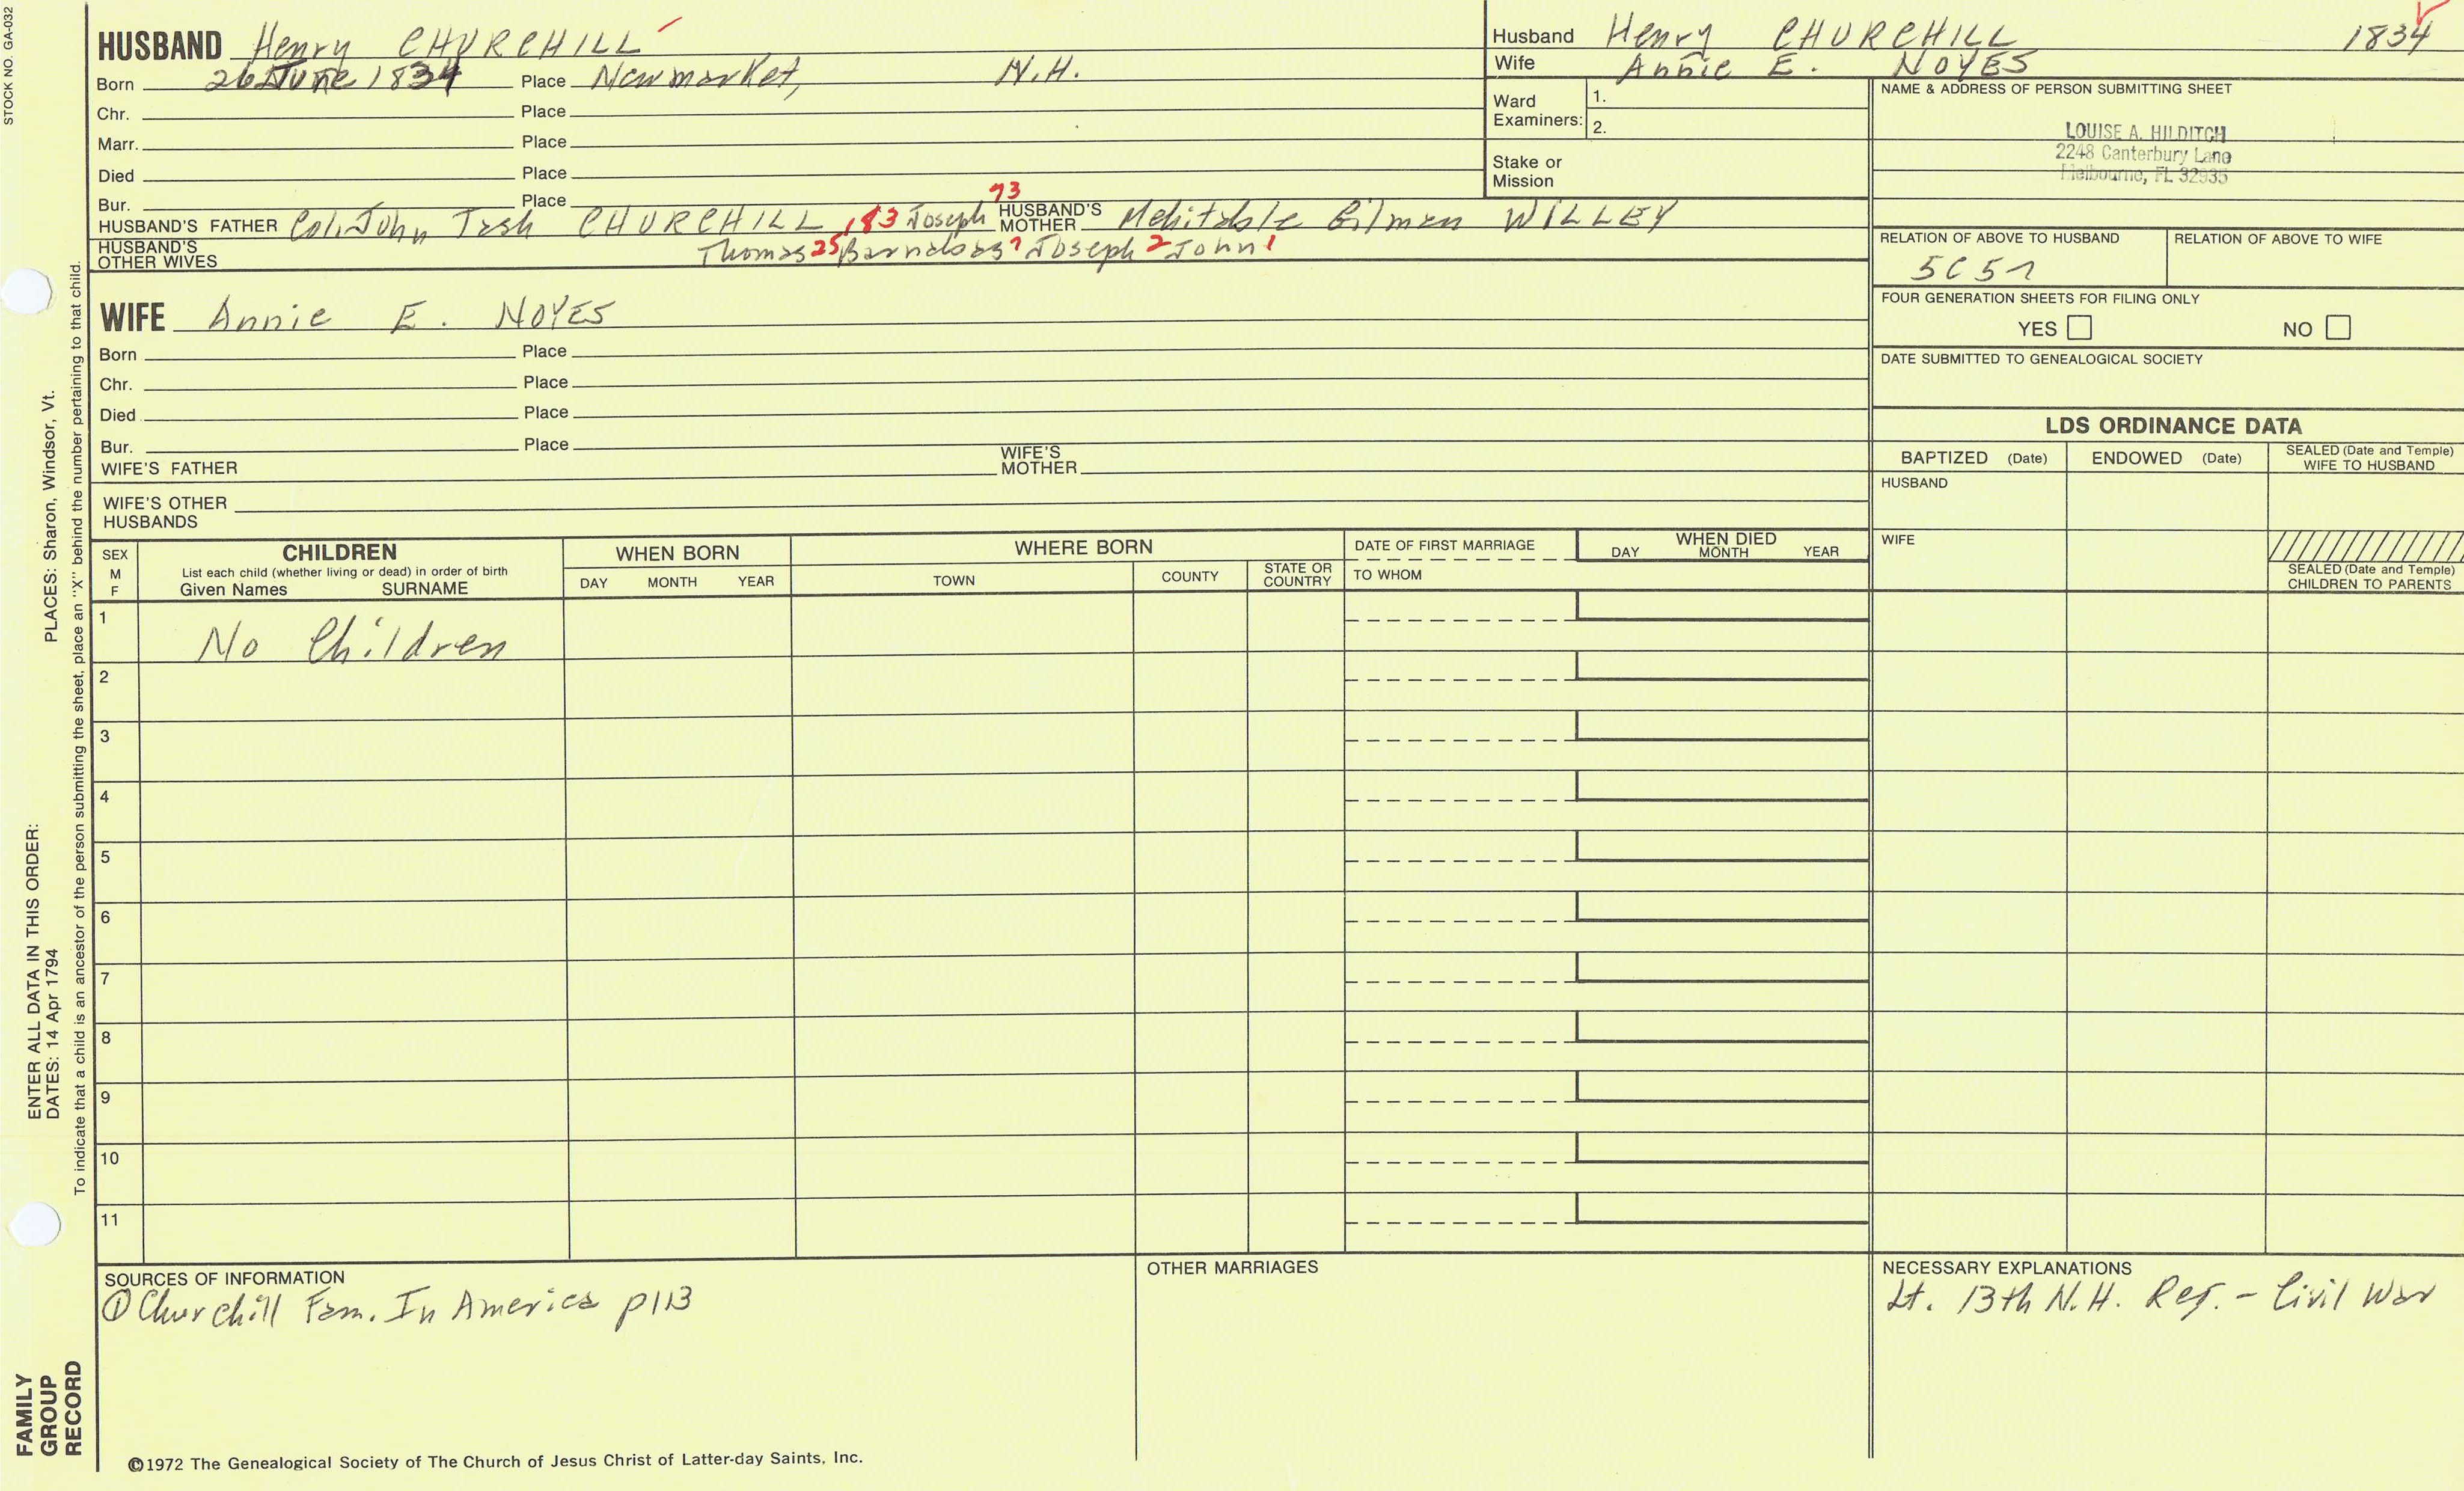 STOCK NO. GA-032
HUSBAND Henry CHURCHILL
Born 26 June 1834 Place Newmarket, N.H.
Chr. Place
Marr. Place
Died Place
Bur. Place
HUSBAND'S FATHER Col. John Tash CHURCHILL 183 Joseph 73 HUSBAND'S MOTHER Mehitable Gilman WILLEY
HUSBAND'S OTHER WIVES Thomas 25 Barnabas 7 Joseph 2 John 1
WIFE Annie E. NOYES
Born Place
Chr. Place
Died Place
Bur. Place
WIFE'S FATHER WIFE'S MOTHER
WIFE'S OTHER HUSBANDS
Husband Henry CHURCHILL 1834
Wife Annie E. NOYES
Ward Examiners: 1.
2.
Stake or Mission
NAME & ADDRESS OF PERSON SUBMITTING SHEET
LOUISE A. HILDITCH
2248 Canterbury Lane
Melbourne, FL 32935
RELATION OF ABOVE TO HUSBAND RELATION OF ABOVE TO WIFE
5C5r
FOUR GENERATION SHEETS FOR FILING ONLY
YES NO
DATE SUBMITTED TO GENEALOGICAL SOCIETY
LDS ORDINANCE DATA
BAPTIZED (Date) ENDOWED (Date) SEALED (Date and Temple) WIFE TO HUSBAND
HUSBAND
WIFE
SEALED (Date and Temple) CHILDREN TO PARENTS
SEX M F
CHILDREN
List each child (whether living or dead) in order of birth
Given Names SURNAME
WHEN BORN
DAY MONTH YEAR
WHERE BORN
TOWN COUNTY STATE OR COUNTRY
DATE OF FIRST MARRIAGE
TO WHOM
WHEN DIED
DAY MONTH YEAR
1 No Children
2
3
4
5
6
7
8
9
10
11
SOURCES OF INFORMATION
① Churchill Fam. In America p113
OTHER MARRIAGES
NECESSARY EXPLANATIONS
Lt. 13th N.H. Reg. - Civil War
©1972 The Genealogical Society of The Church of Jesus Christ of Latter-day Saints, Inc.
FAMILY
GROUP
RECORD
ENTER ALL DATA IN THIS ORDER:
DATES: 14 Apr 1794 PLACES: Sharon, Windsor, Vt.
To indicate that a child is an ancestor of the person submitting the sheet, place an "X" behind the number pertaining to that child.